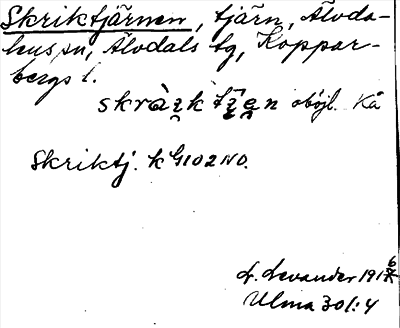 Skriktjärnen, tjärn, Älvda-
lens sn, Älvdals tg, Koppar-
bergs l.
oböjl. Kå
Skriktj. k G102NO.
L. Levander 191
Ulma 301:4